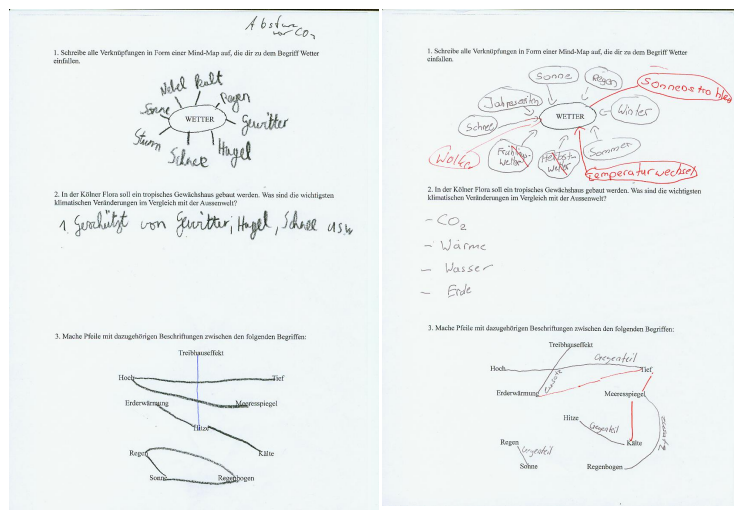 Abstu
vor CO2
1. Schreibe alle Verknüpfungen in Form einer Mind-Map auf, die dir zu dem Begriff Wetter
einfallen.
Nebel
kalt
Regen
Sonne
WETTER
Gewitter
Sturm
Schnee
Hagel
2. In der Kölner Flora soll ein tropisches Gewächshaus gebaut werden. Was sind die wichtigsten
klimatischen Veränderungen im Vergleich mit der Aussenwelt?
1. Geschützt von Gewitter, Hagel, Schnee usw
3. Mache Pfeile mit dazugehörigen Beschriftungen zwischen den folgenden Begriffen:
Treibhauseffekt
Hoch
Tief
Erderwärmung
Meeresspiegel
Hitze
Regen
Kälte
Sonne
Regenbogen
1. Schreibe alle Verknüpfungen in Form einer Mind-Map auf, die dir zu dem Begriff Wetter
einfallen.
Sonne
Regen
Sonnenstrahlen
Jahreszeiten
WETTER
Winter
Schnee
Wolken
Frühlings
Wetter
Herbst
Wetter
Sommer
Temperaturwechsel
2. In der Kölner Flora soll ein tropisches Gewächshaus gebaut werden. Was sind die wichtigsten
klimatischen Veränderungen im Vergleich mit der Aussenwelt?
- CO2
- Wärme
- Wasser
- Erde
3. Mache Pfeile mit dazugehörigen Beschriftungen zwischen den folgenden Begriffen:
Treibhauseffekt
Gegenteil
Hoch
Tief
Erderwärmung
Meeresspiegel
Hitze
Gegenteil
Kälte
Regen
Gegenteil
Sonne
Regenbogen